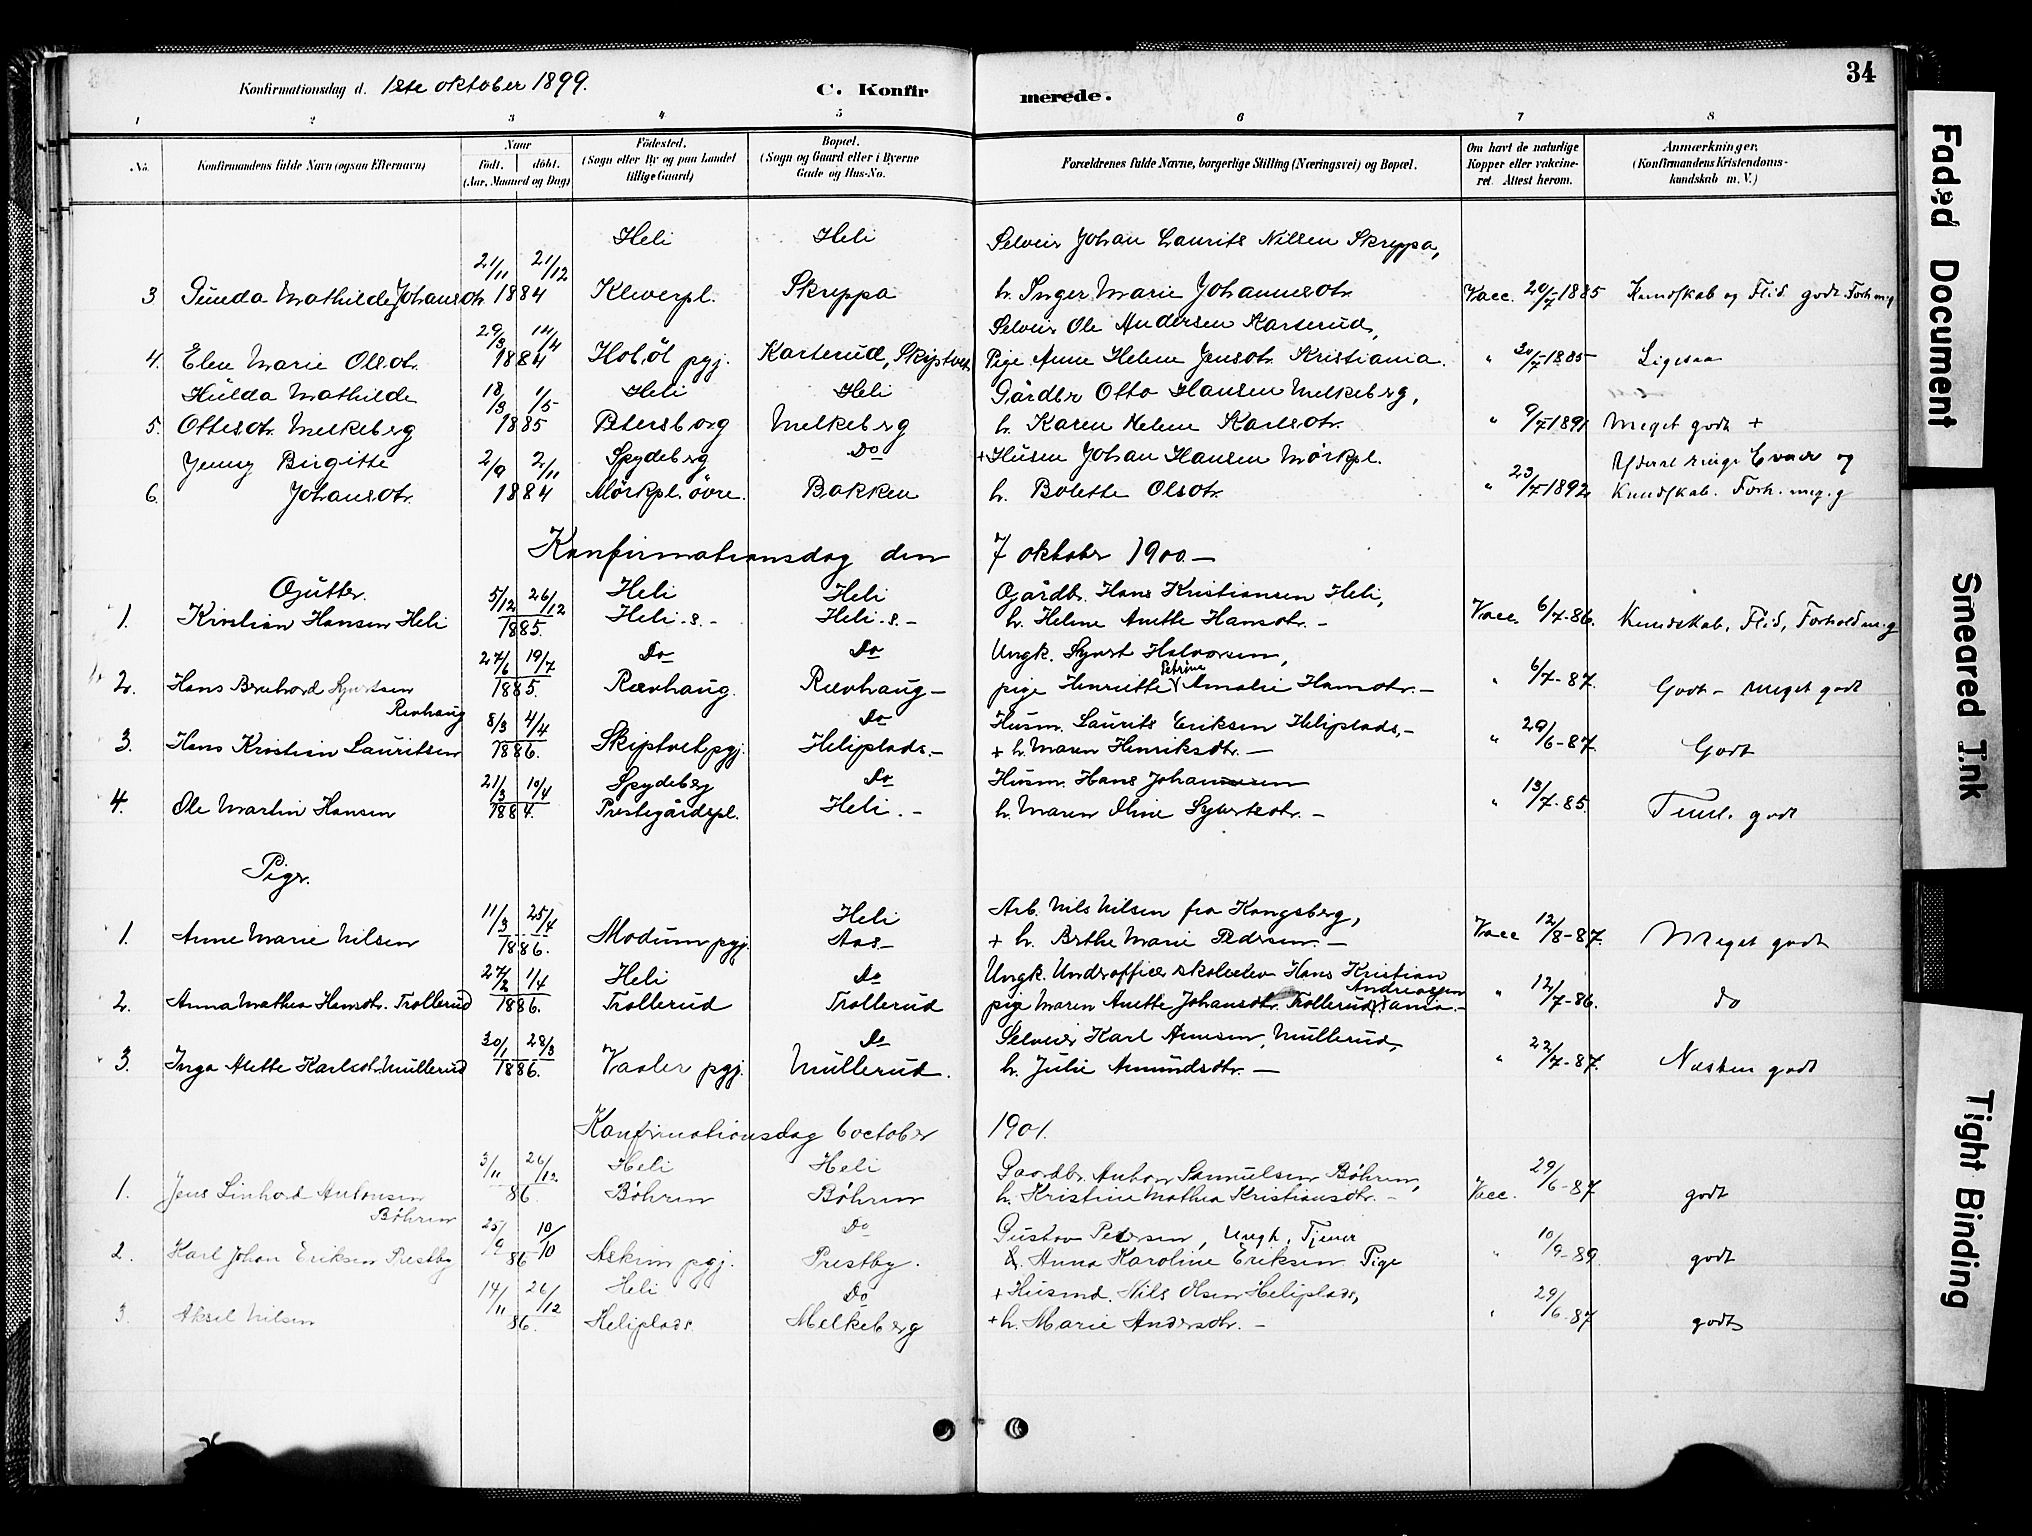 34
Konfirmationsdag d. 1ste oktober 1899.
C. Konfirmerede.
1 2 3 4 5 6 7 8
No.
Konfirmandens fulde Navn (ogsaa Efternavn)
Naar
født. døbt.
(Aar, Maaned og Dag)
Fødested.
(Sogn eller By og paa Landet
tillige Gaard)
Bopæl.
(Sogn og Gaard eller i Byerne
Gade og Hus-No.
Forældrenes fulde Navne, borgerlige Stilling (Næringsvei) og Bopæl.
Om havt de naturlige
Kopper eller vakcine-
ret. Attest herom.
Anmærkninger.
(Konfirmandens Kristendoms-
kundskab m. V.)
Heli Heli Selveir Johan Laurits Nilsen Skreppa,
21/11 21/12
3 Gunda Mathilde Johansdtr. 1884 Kleverpl. Skreppa h. Inger Marie Johannesdtr. Vacc. 20/7 1885 Kundskab og Flid godt Forh. m.g
29/3 14/4 Selveir Ole Andersen Karterud,
4. Elen Marie Olsdtr. 1884 Hobøl pgj. Karterud, Skiptvet Pige Anne Helene Jensdtr. Kristiania. " 20/7 1885 Ligesaa
Hulda Mathilde 18/3 1/5 Heli Heli Gårdbr Otto Hansen Melkeberg,
5. Ottesdtr. Melkeberg 1885 Petersborg Melkeberg h. Karen Helene Karlsdtr. " 9/7 1891 Meget godt +
Jenny Birgitte 2/9 2/11 Spydeberg Do + Husm Johan Hansen Mörkpl. Yderst ringe Evner og
6. Johansdtr. 1884 Mörkpl. övre. Bakken h. Bolette Olsdtr. " 23/7 1892 Kundskab. Forh. meg. g
Konfirmationsdag den 7 oktober 1900.—
Gutter. 5/12 26/12 Heli Heli Gårdbr. Hans Kristiansen Heli,
1. Kristian Hansen Heli 1885. Heli. s.- Heli. s.- h. Helene Anette Hansdtr. — Vacc. 6/7-86. Kundskab, Flid, Forhold m.g
27/6 19/7 Do Do Ungk. Syvert Halvorsen,
2. Hans Brunhard Syvertsen 1885. Rævhaug. Rævhaug — pige Henriette Petrine Amalie Hansdtr. — " 6/7-87. Godt - meget godt
Revhaug 8/3 4/4 Do Husm. Laurits Eriksen Heliplads,-
3. Hans Kristian Lauritsen 1886. Skiptvet pgj. Heliplads.- + h. Maren Henriksdtr. — " 29/6-87. Godt
21/3 10/4 Spydeberg Do Husm. Hans Johannesen
4. Ole Martin Hansen 1884. Prestegårdspl. Heli. - h. Maren Oline Syvertsdtr. — " 13/7-85. Teml. godt
Piger.
11/3 25/4 Heli Arb. Nils Nilsen fra Kongsberg,
1. Anne Marie Nilsen 1886. Modum pgj. Aas- + h. Berthe Marie Pedersen. — Vacc 12/8-87. Meget godt
27/2 1/4 Heli Do Ungk. Underofficerskoleelev Hans Kristian Andreassen
2. Anna Mathea Hansdtr. Trollerud 1886. Trollerud Trollerud pige Maren Anette Johansdtr. Trollerud, Xania.- " 12/7-86. do
30/1 28/3 Do Selveier Karl Arnesen, Mullerud,
3. Inga Alette Karlsdtr. Mullerud 1886. Vaaler pgj. Mullerud. h. Julie Amundsdtr. — " 22/7-87. Næsten godt
Konfirmationsdag 6 october 1901.
3/11 26/12 Heli Heli Gaardbr. Anton Samuelsen Böhren,
1. Jens Linhard Antonsen 86. Böhren Böhren h. Kristine Mathea Kristiansdtr. - Vacc. 29/6-87 godt
Böhren 25/9 10/10 Do Gustav Petersen, Ungk. Tjener
2. Karl Johan Eriksen Prestby 86 Askim pgj. Prestby. & Anna Karoline Eriksen Pige " 10/9-89. godt
14/11 26/12 Heli Do + Husmd. Nils Olsen Heliplads,
3. Aksel Nilsen 86. Heliplads Melkeberg + h. Marie Andersdtr. — " 29/6-87 godt
Faded Document
Smeared Ink
Tight Binding